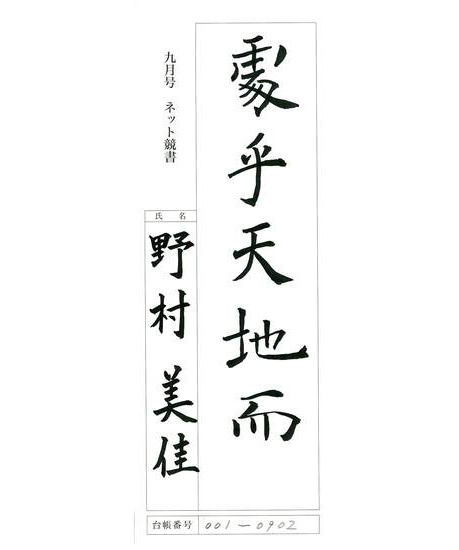 處乎天地而
九月号 ネット競書
氏 名
野村 美佳
台帳番号 001-0902